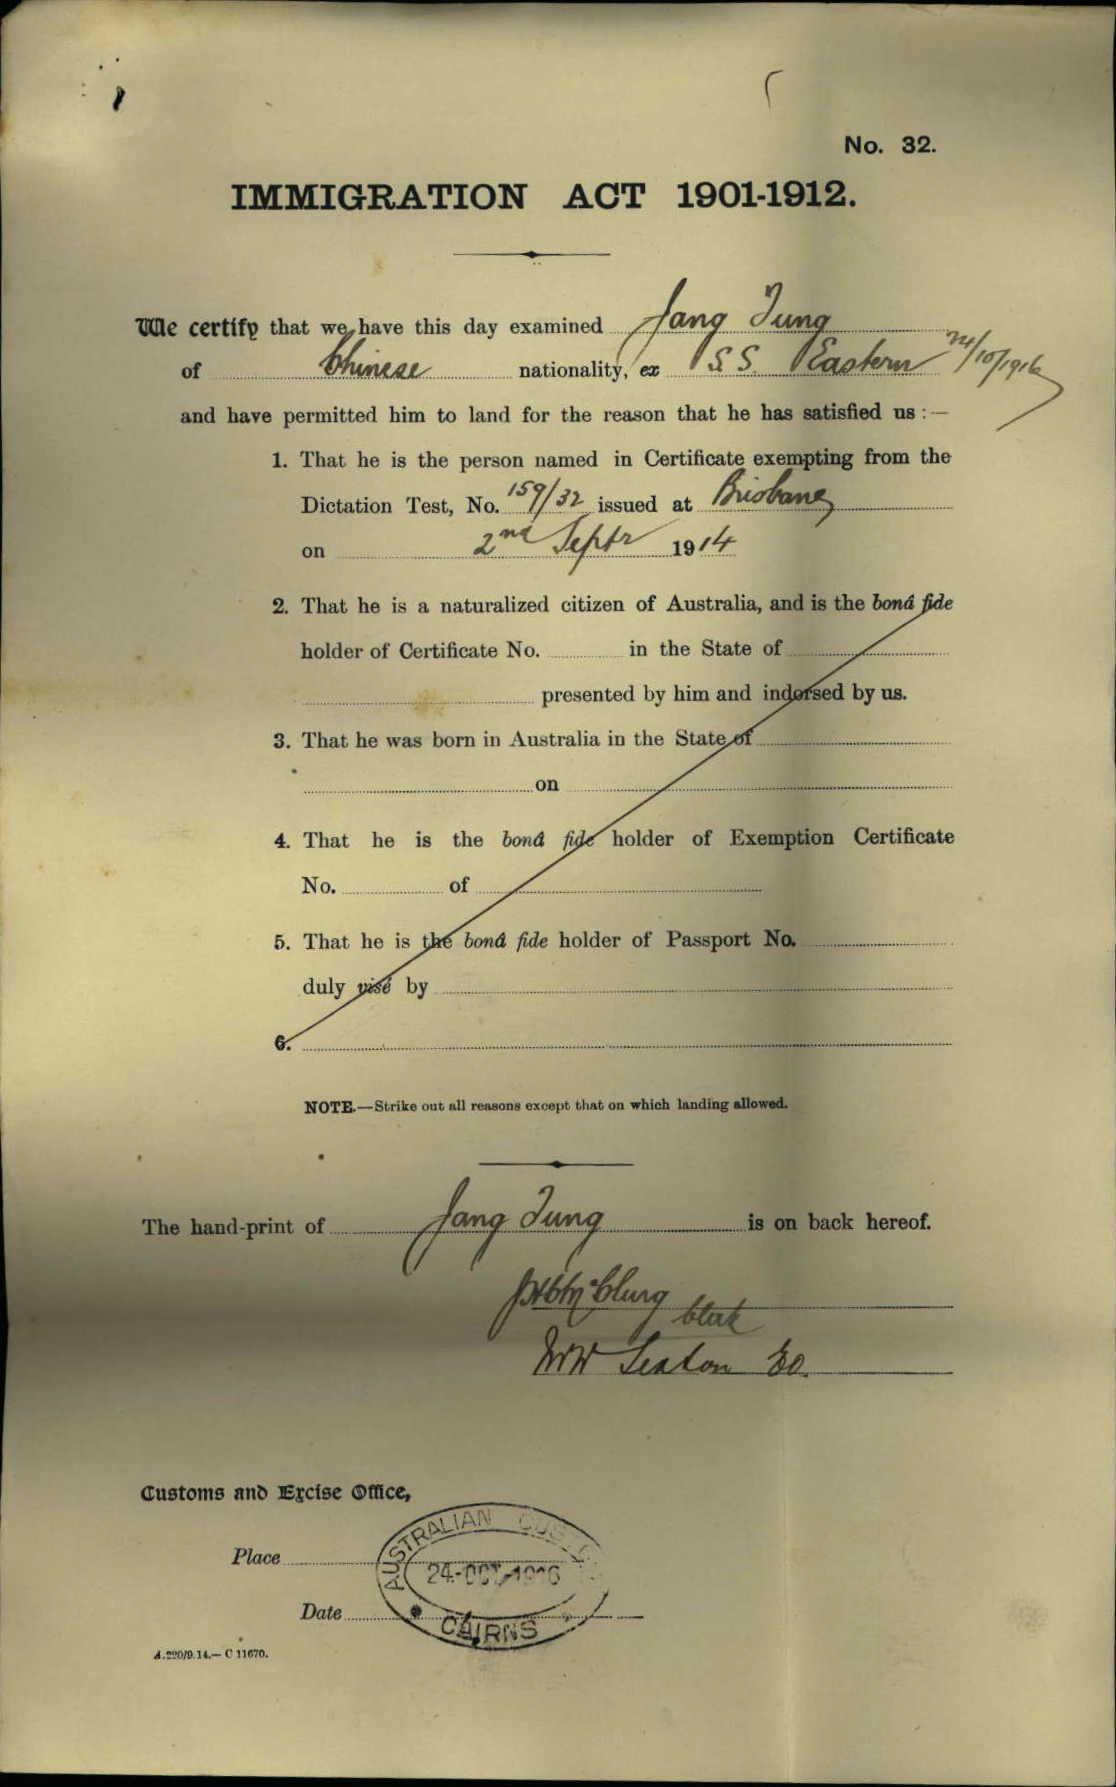 No. 32.
IMMIGRATION ACT 1901-1912.
We certify that we have this day examined Jang Tung
of Chinese nationality, ex S.S. Eastern 24/10/1916
and have permitted him to land for the reason that he has satisfied us :—
1. That he is the person named in Certificate exempting from the
Dictation Test, No. 159/32 issued at Brisbane
on 2nd Septr 1914
2. That he is a naturalized citizen of Australia, and is the bonâ fide
holder of Certificate No. in the State of
presented by him and indorsed by us.
3. That he was born in Australia in the State of
on
4. That he is the bonâ fide holder of Exemption Certificate
No. of
5. That he is the bonâ fide holder of Passport No.
duly visé by
6.
NOTE.—Strike out all reasons except that on which landing allowed.
The hand-print of Jang Tung is on back hereof.
McClurg
Clerk
WW Seaton EO.
Customs and Excise Office,
Place
Date
AUSTRALIAN CUSTOMS
24-OCT-1916
CAIRNS
A.220/9.14.—C 11670.